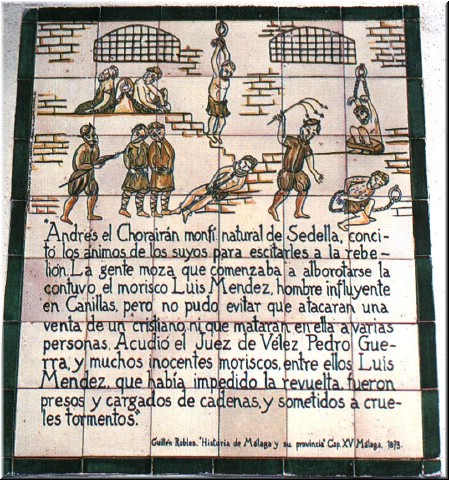 "Andrés el Chorairán monfí natural de Sedella, conci-
tó los animos de los suyos para escitarles a la rebe-
lión. La gente moza que comenzaba a alborotarse la
contuvo el morisco Luis Mendez, hombre influyente
en Canillas, pero no pudo evitar que atacaran una
venta de un cristiano, ni que mataran en ella a varias
personas. Acudió el Juez de Vélez, Pedro Gue-
rra, y muchos inocentes moriscos, entre ellos Luis
Mendez, que había impedido la revuelta, fueron
presos y cargados de cadenas, y sometidos a crue-
les tormentos."
Guillén Robles. "Historia de Málaga y su provincia" Cap. XV Málaga, 1873.